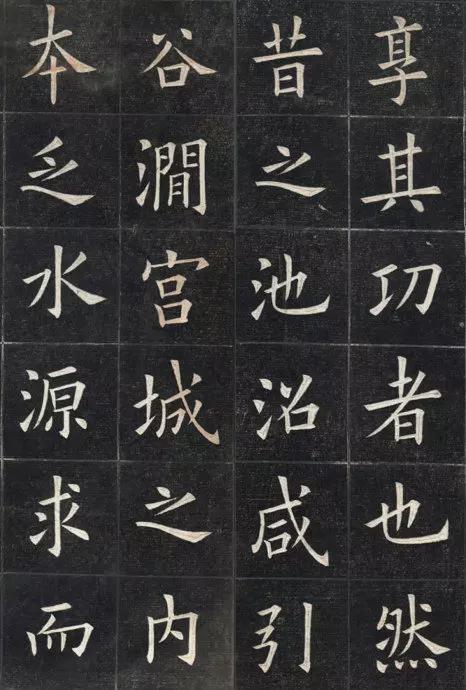 享其功者也然
昔之池沼咸引
谷澗宫城之内
本乏水源求而